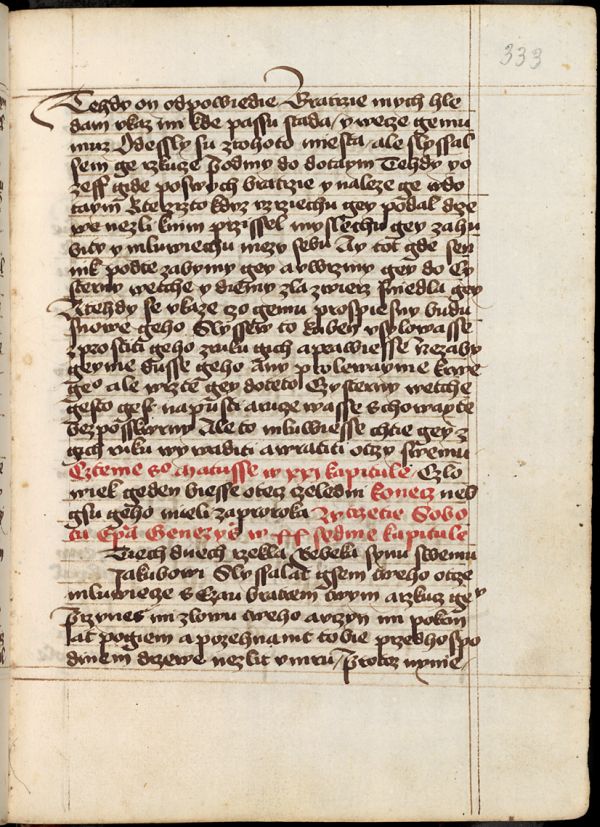 333
Tehdy on odpowiedie Bratrzie mych hle
dam vkaz mi kde passu stada / y wecze gemu
muz Odessly su ztohoto miesta / ale slyssal
sem ge rzkucze Podmy do dotaym Tehdy yo
zeff gide poswych bratrzie y naleze ge wdo
taym Kterzzto kdyz vzrziechu gey podal drze
we nezli knim przissel myslechu gey zahu
biti y mluwiechu mezy sebu Ay tot gde sen
nik podte zabymy gey a vwrzmy gey do Cy
sterny wetche y diemy zla zwierz sniedla gey
A tehdy se vkaze czo gemu prospiesny budu
snowe geho Slyssew to Ruben vsylowasse
zprostiti geho zruku gich a prawiesse Nezaby
geyme dusse geho Any prolewayme krwe
geo ale wrzte gey doteto Czysterny wetche
gesto gest na pusti a rucze wasse schowayte
bez posskwrny Ale to mluwiesse chtie gey z
gich ruku wywaditi a wratiti otczy swemu
Czteme so Matusse w xxi kapitule Czlo
wiek geden biesse otecz czeledni konecz neb
gsu geho mieli zaproroka Zytrzetie Sobo
tu Epla Genezys w xx sedme kapitule
Tiech dnech rzekla Rebeka synu swemu
Jakubowi Slyssalat gsem tweho otcze
mluwiecze s Ezau bratrem twym a rzkucz gey
Przynes mi zlowu tweho a vczyn mi pokrm
at pogiem a pozehnamt tobie przed hospo
dinem drzewe nezlit vmru / Protoz nynie